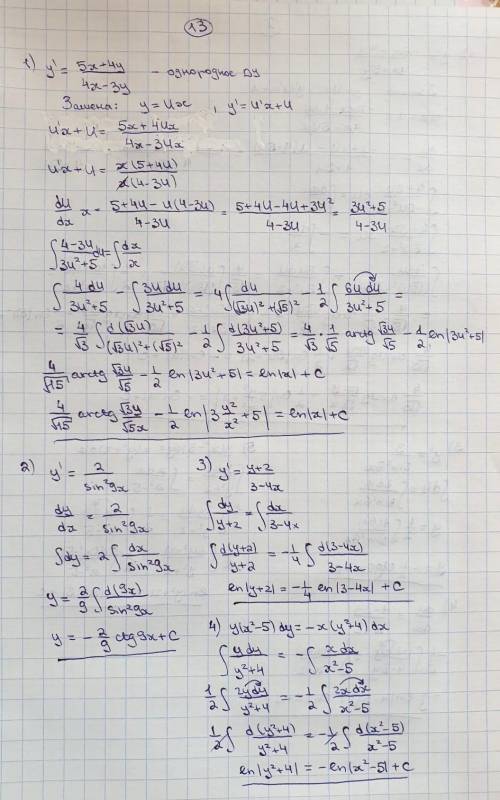 13
1) y' = (5x+4y)/(4x-3y) - однородное ДУ
Замена: y = Ux , y' = U'x+U
U'x+U = (5x+4Ux)/(4x-3Ux)
U'x+U = x(5+4U)/x(4-3U)
dU/dx x = (5+4U-U(4-3U))/(4-3U) = (5+4U-4U+3U²)/(4-3U) = (3U²+5)/(4-3U)
∫ (4-3U)/(3U²+5) dU = ∫ dx/x
∫ 4dU/(3U²+5) - ∫ 3UdU/(3U²+5) = 4∫ dU/((√3U)²+(√5)²) - 1/2 ∫ 6UdU/(3U²+5) =
= 4/√3 ∫ d(√3U)/((√3U)²+(√5)²) - 1/2 ∫ d(3U²+5)/(3U²+5) = 4/√3 · 1/√5 arctg √3U/√5 - 1/2 ln|3U²+5|
4/√15 arctg √3U/√5 - 1/2 ln|3U²+5| = ln|x| + C
4/√15 arctg √3y/√5x - 1/2 ln|3 y²/x² + 5| = ln|x| + C
2) y' = 2/sin²9x
dy/dx = 2/sin²9x
∫dy = 2∫ dx/sin²9x
y = 2/9 ∫ d(9x)/sin²9x
y = - 2/9 ctg9x + C
3) y' = (y+2)/(3-4x)
∫ dy/(y+2) = ∫ dx/(3-4x)
∫ d(y+2)/(y+2) = -1/4 ∫ d(3-4x)/(3-4x)
ln|y+2| = -1/4 ln|3-4x| + C
4) y(x²-5)dy = -x(y²+4)dx
∫ ydy/(y²+4) = -∫ xdx/(x²-5)
1/2 ∫ 2ydy/(y²+4) = -1/2 ∫ 2xdx/(x²-5)
1/2 ∫ d(y²+4)/(y²+4) = -1/2 ∫ d(x²-5)/(x²-5)
ln|y²+4| = -ln|x²-5| + C